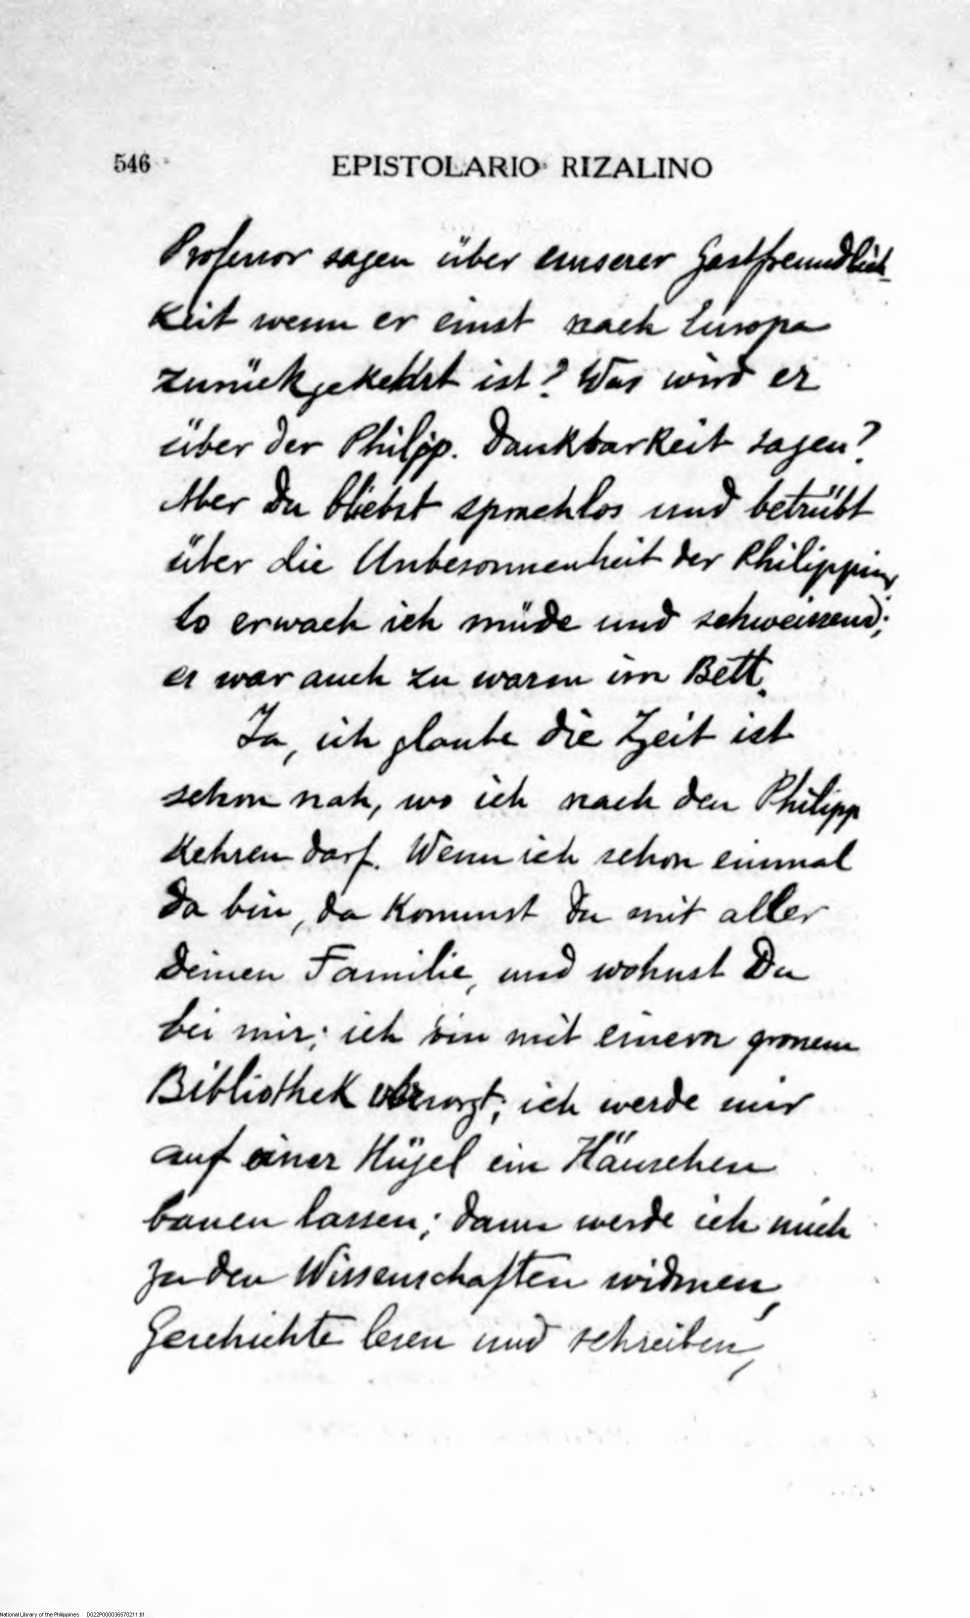 546
EPISTOLARIO RIZALINO
Professor sagen über unserer Gastfreundlich-
keit wenn er einst nach Europa
zurückgekehrt ist? Was wird er
über der Philipp. Dankbarkeit sagen?
Aber Du bliebst sprachlos und betrübt
über die Unbesonnenheit der Philippiner
So erwach ich müde und schweissend;
es war auch zu warm im Bett.
Ja, ich glaube die Zeit ist
schon nah, wo ich nach den Philipp
kehren darf. Wenn ich schon einmal
da bin, da kommst Du mit aller
deinen Familie, und wohnst Du
bei mir; ich bin mit einem grossem
Bibliothek versorgt; ich werde mir
auf einer Hügel ein Häuschen
bauen lassen; dann werde ich mich
zu den Wissenschaften widmen,
Geschichte lesen und schreiben,
National Library of the Philippines